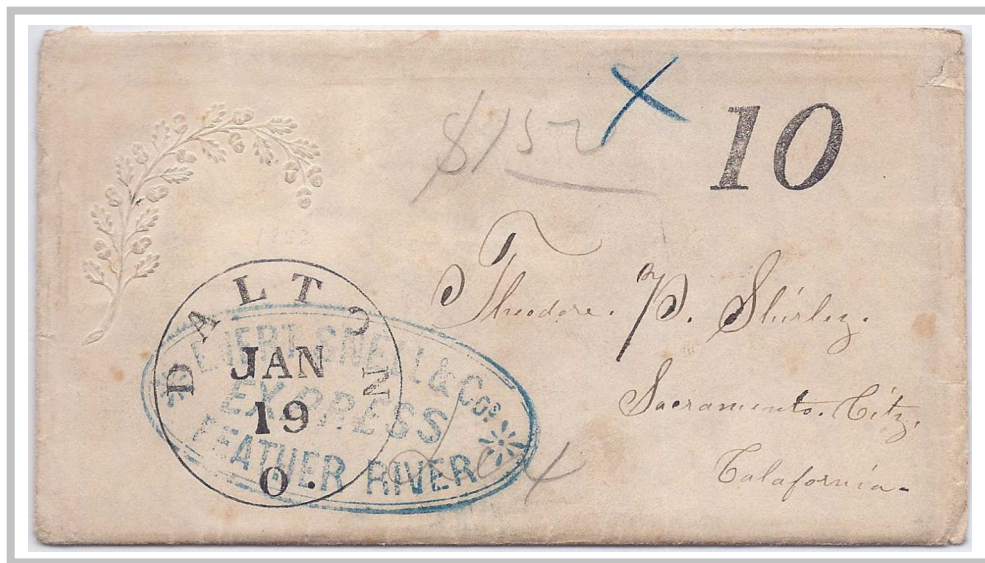 $1 50
X
10
Theodore. P. Shirley.
Sacramento. City,
Calafornia-
DALTON
JAN
19
O.
& Cos
EXPRESS
FEATHER RIVER